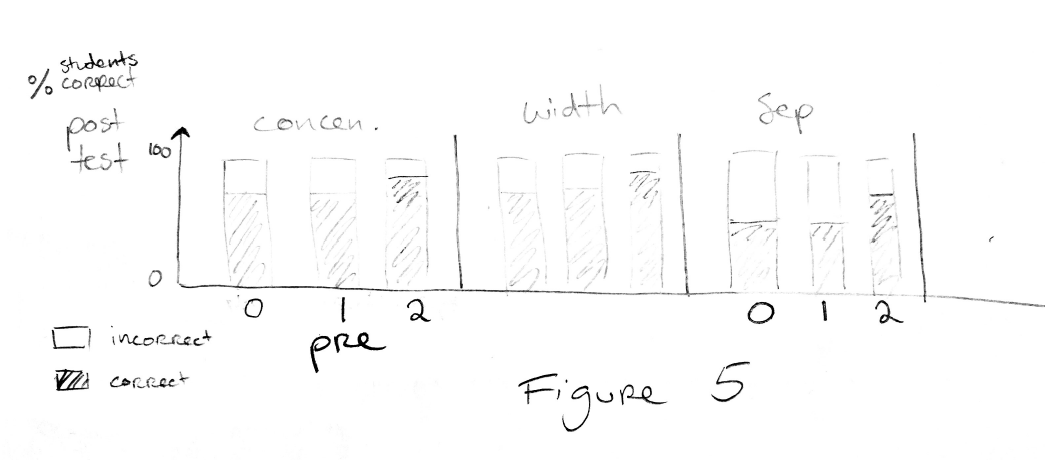 % students
correct
post
test
concen.
width
Sep
100
0
0 1 2
0 1 2
pre
incorrect
correct
Figure 5